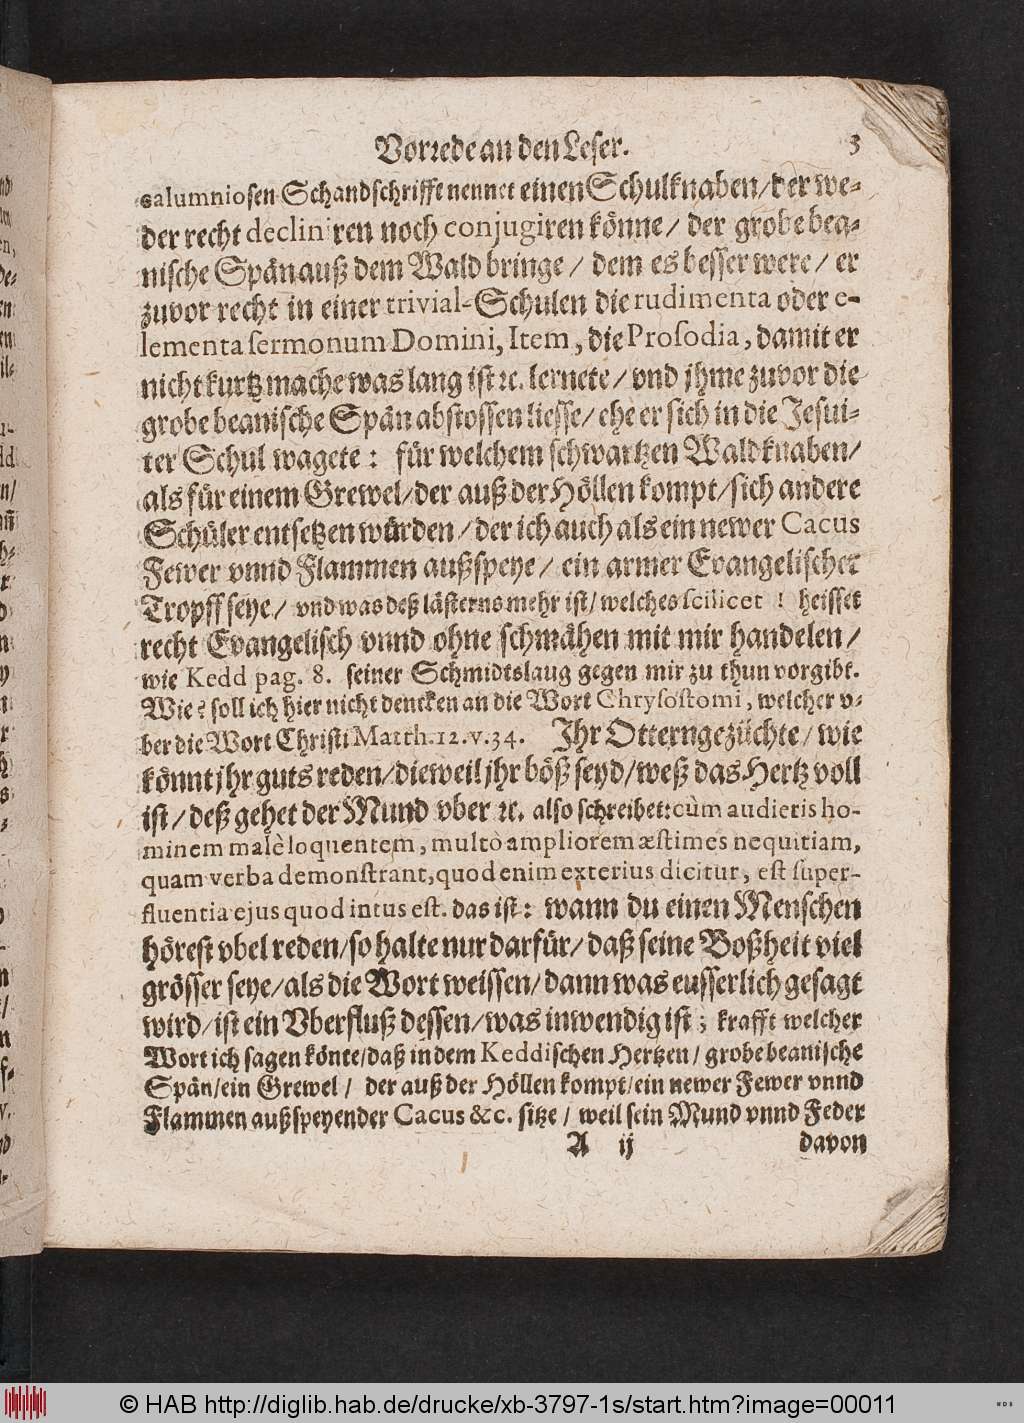 Vorrede an den Leser. 3
calumniosen Schandschrifft nennet einen Schulknaben/der we-
der recht decliniren noch conjugiren könne/ der grobe bea-
nische Spän auß dem Wald bringe/ dem es besser were/ er
zuvor recht in einer trivial-Schulen die rudimenta oder e-
lementa sermonum Domini, Item, die Prosodia, damit er
nicht kurtz mache was lang ist ꝛc. lernete/ vnd jhme zuvor die
grobe beanische Spän abstossen liesse/ ehe er sich in die Jesui-
ter Schul wagete: für welchem schwartzen Waldknaben/
als für einem Grewel/der auß der Höllen kompt/sich andere
Schüler entsetzen würden/der ich auch als ein newer Cacus
Fewer vnnd Flammen außspeye/ ein armer Evangelischer
Tropff seye/ vnd was deß lästerns mehr ist/ welches scilicet! heisset
recht Evangelisch vnnd ohne schmähen mit mir handelen/
wie Kedd pag. 8. seiner Schmidtslaug gegen mir zu thun vorgibt.
Wie? soll ich hier nicht dencken an die Wort Chrysostomi, welcher v-
ber die Wort Christi Matth.12.v.34. Ihr Otterngezüchte/ wie
könnt jhr guts reden/dieweil jhr böß seyd/weß das Hertz voll
ist/ deß gehet der Mund vber ꝛc. also schreibet: cùm audieris ho-
minem malè loquentem, multò ampliorem æstimes nequitiam,
quam verba demonstrant, quod enim exterius dicitur, est super-
fluentia ejus quod intus est. das ist: wann du einen Menschen
hörest vbel reden/so halte nur darfür/ daß seine Boßheit viel
grösser seye/als die Wort weissen/dann was eusserlich gesagt
wird/ist ein Vberfluß dessen/was inwendig ist; krafft welcher
Wort ich sagen könte/daß in dem Keddischen Hertzen/ grobe beanische
Spän/ein Grewel/ der auß der Höllen kompt/ein newer Fewer vnnd
Flammen außspeyender Cacus &c. sitze/ weil sein Mund vnnd Feder
A ij davon
© HAB http://diglib.hab.de/drucke/xb-3797-1s/start.htm?image=00011